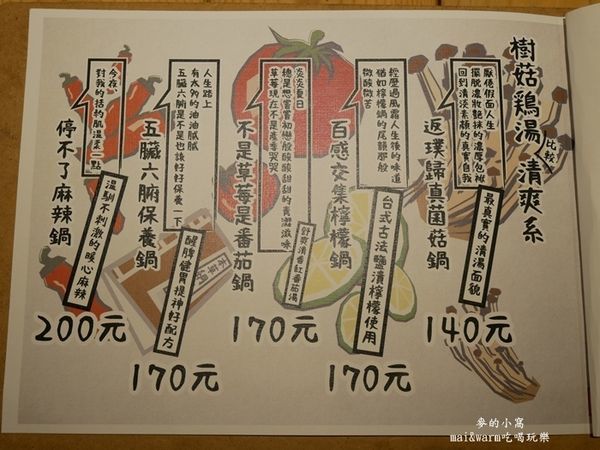 樹菇鶏湯 比較 清爽系
厭倦假面人生
擺脫濃妝艷抹的濃厚包袱
回到清淡素顏的真實自我
最真實的清湯面貌
返璞歸真菌菇鍋
140元
經歷過風霜人生後的味道
猶如檸檬鍋的尾韻那般
微酸微苦
台式古法鹽漬檸檬使用
百感交集檸檬鍋
170元
炎炎夏日
總是想嘗嘗初戀般酸酸甜甜的青澀滋味
草莓現在不是產季哭哭
舒爽清香紅番茄湯
不是草莓是番茄鍋
170元
人生路上
有太多的油油膩膩
五臟六腑是不是也該好好保養一下
醒脾健胃提神好配方
五臟六腑保養鍋
170元
今夜
對我的括約肌溫柔一點
溫馴不刺激的暖心麻辣
停不了麻辣鍋
200元
麥的小窩
mai&warm吃喝玩樂